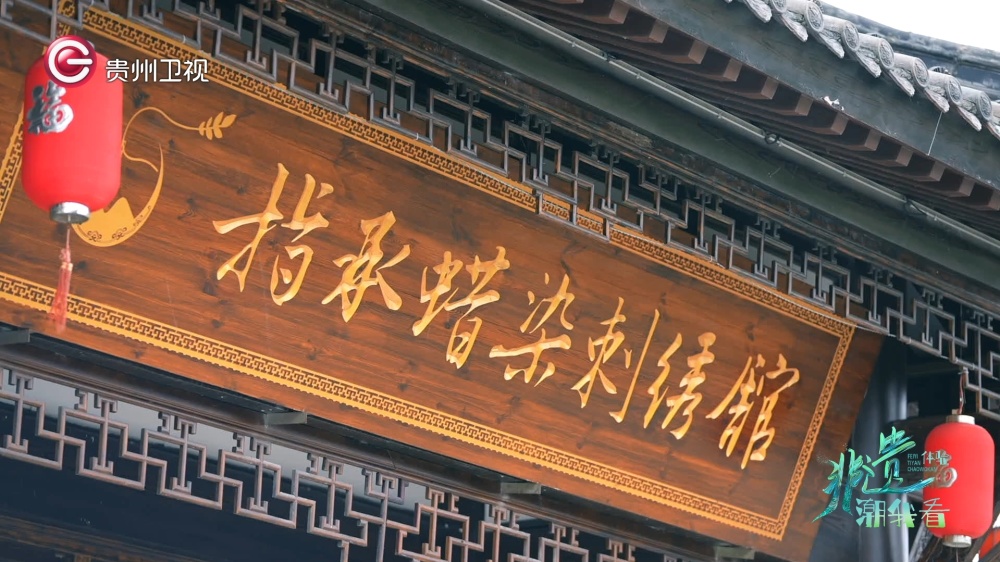 贵州卫视
福
指承蜡染刺绣館
非贵
体验
FEIYI
TIYAN
潮我看